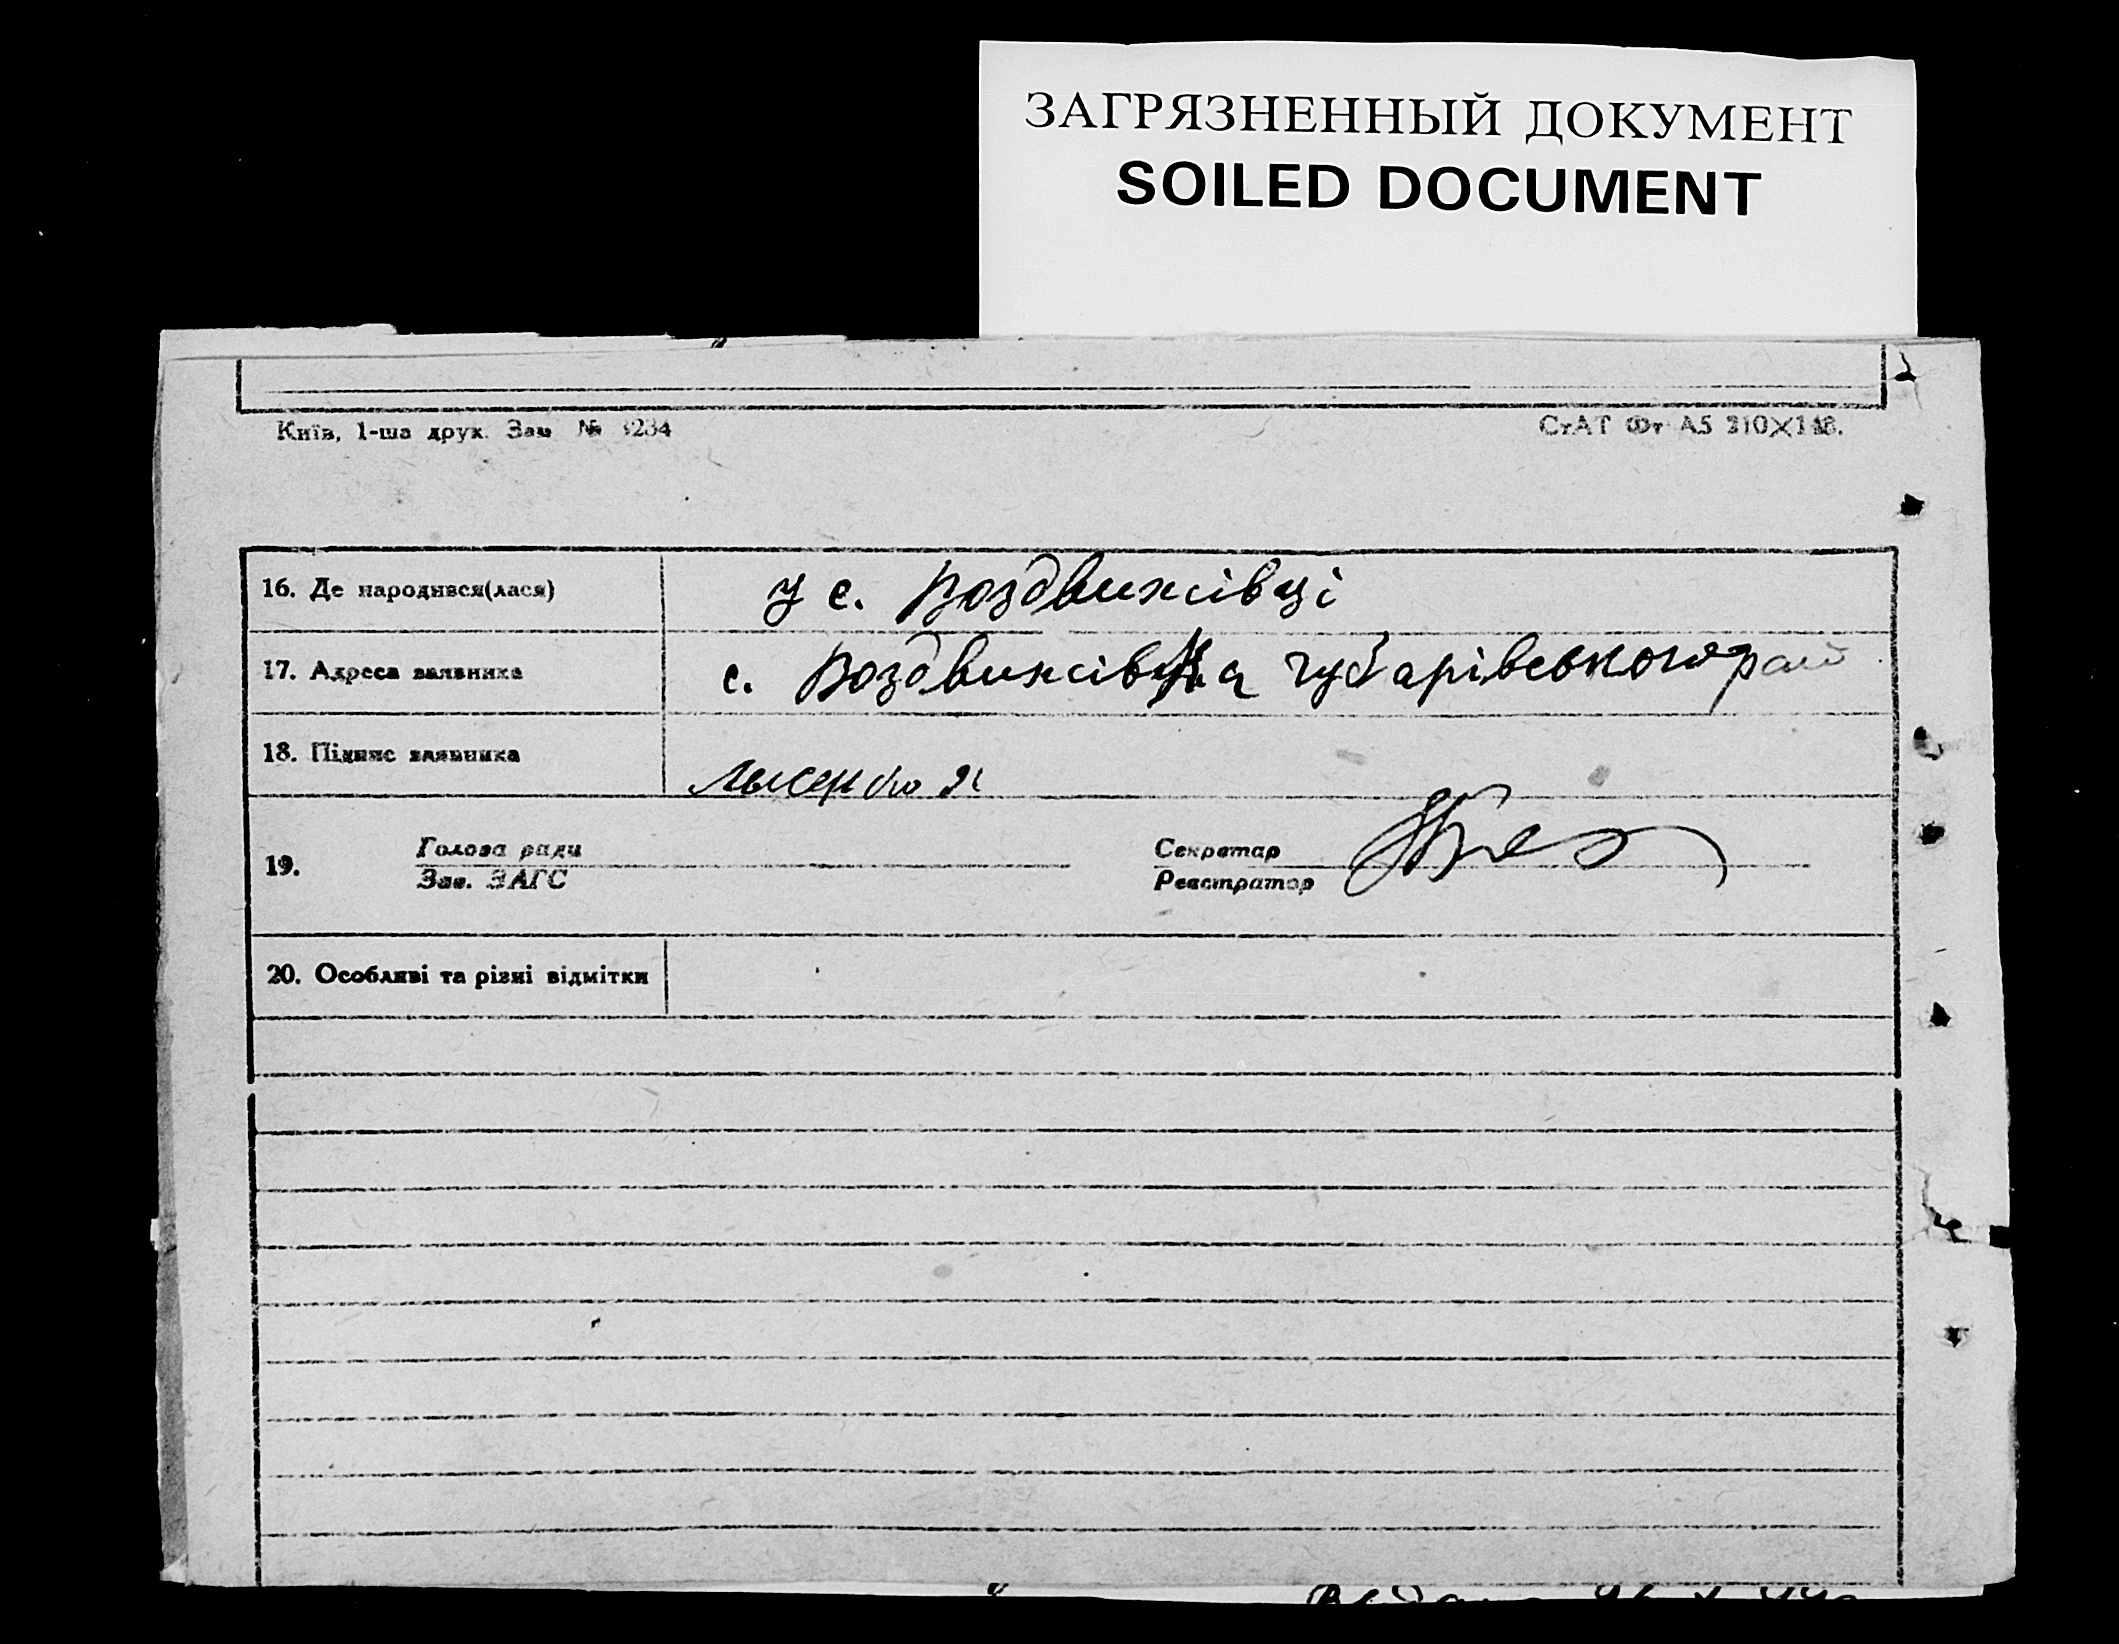 ЗАГРЯЗНЕННЫЙ ДОКУМЕНТ
SOILED DOCUMENT
Київ, 1-ша друк. Зам № 234
СтАТ Фт А5 210×148.
16. Де народився(лася) у с. Воздвижівці
17. Адреса заявника с. Воздвижівка Губарівського рай
18. Підпис заявника Лысенко
19. Голова ради Секретар
Зав. ЗАГС Реєстратор
20. Особливі та різні відмітки